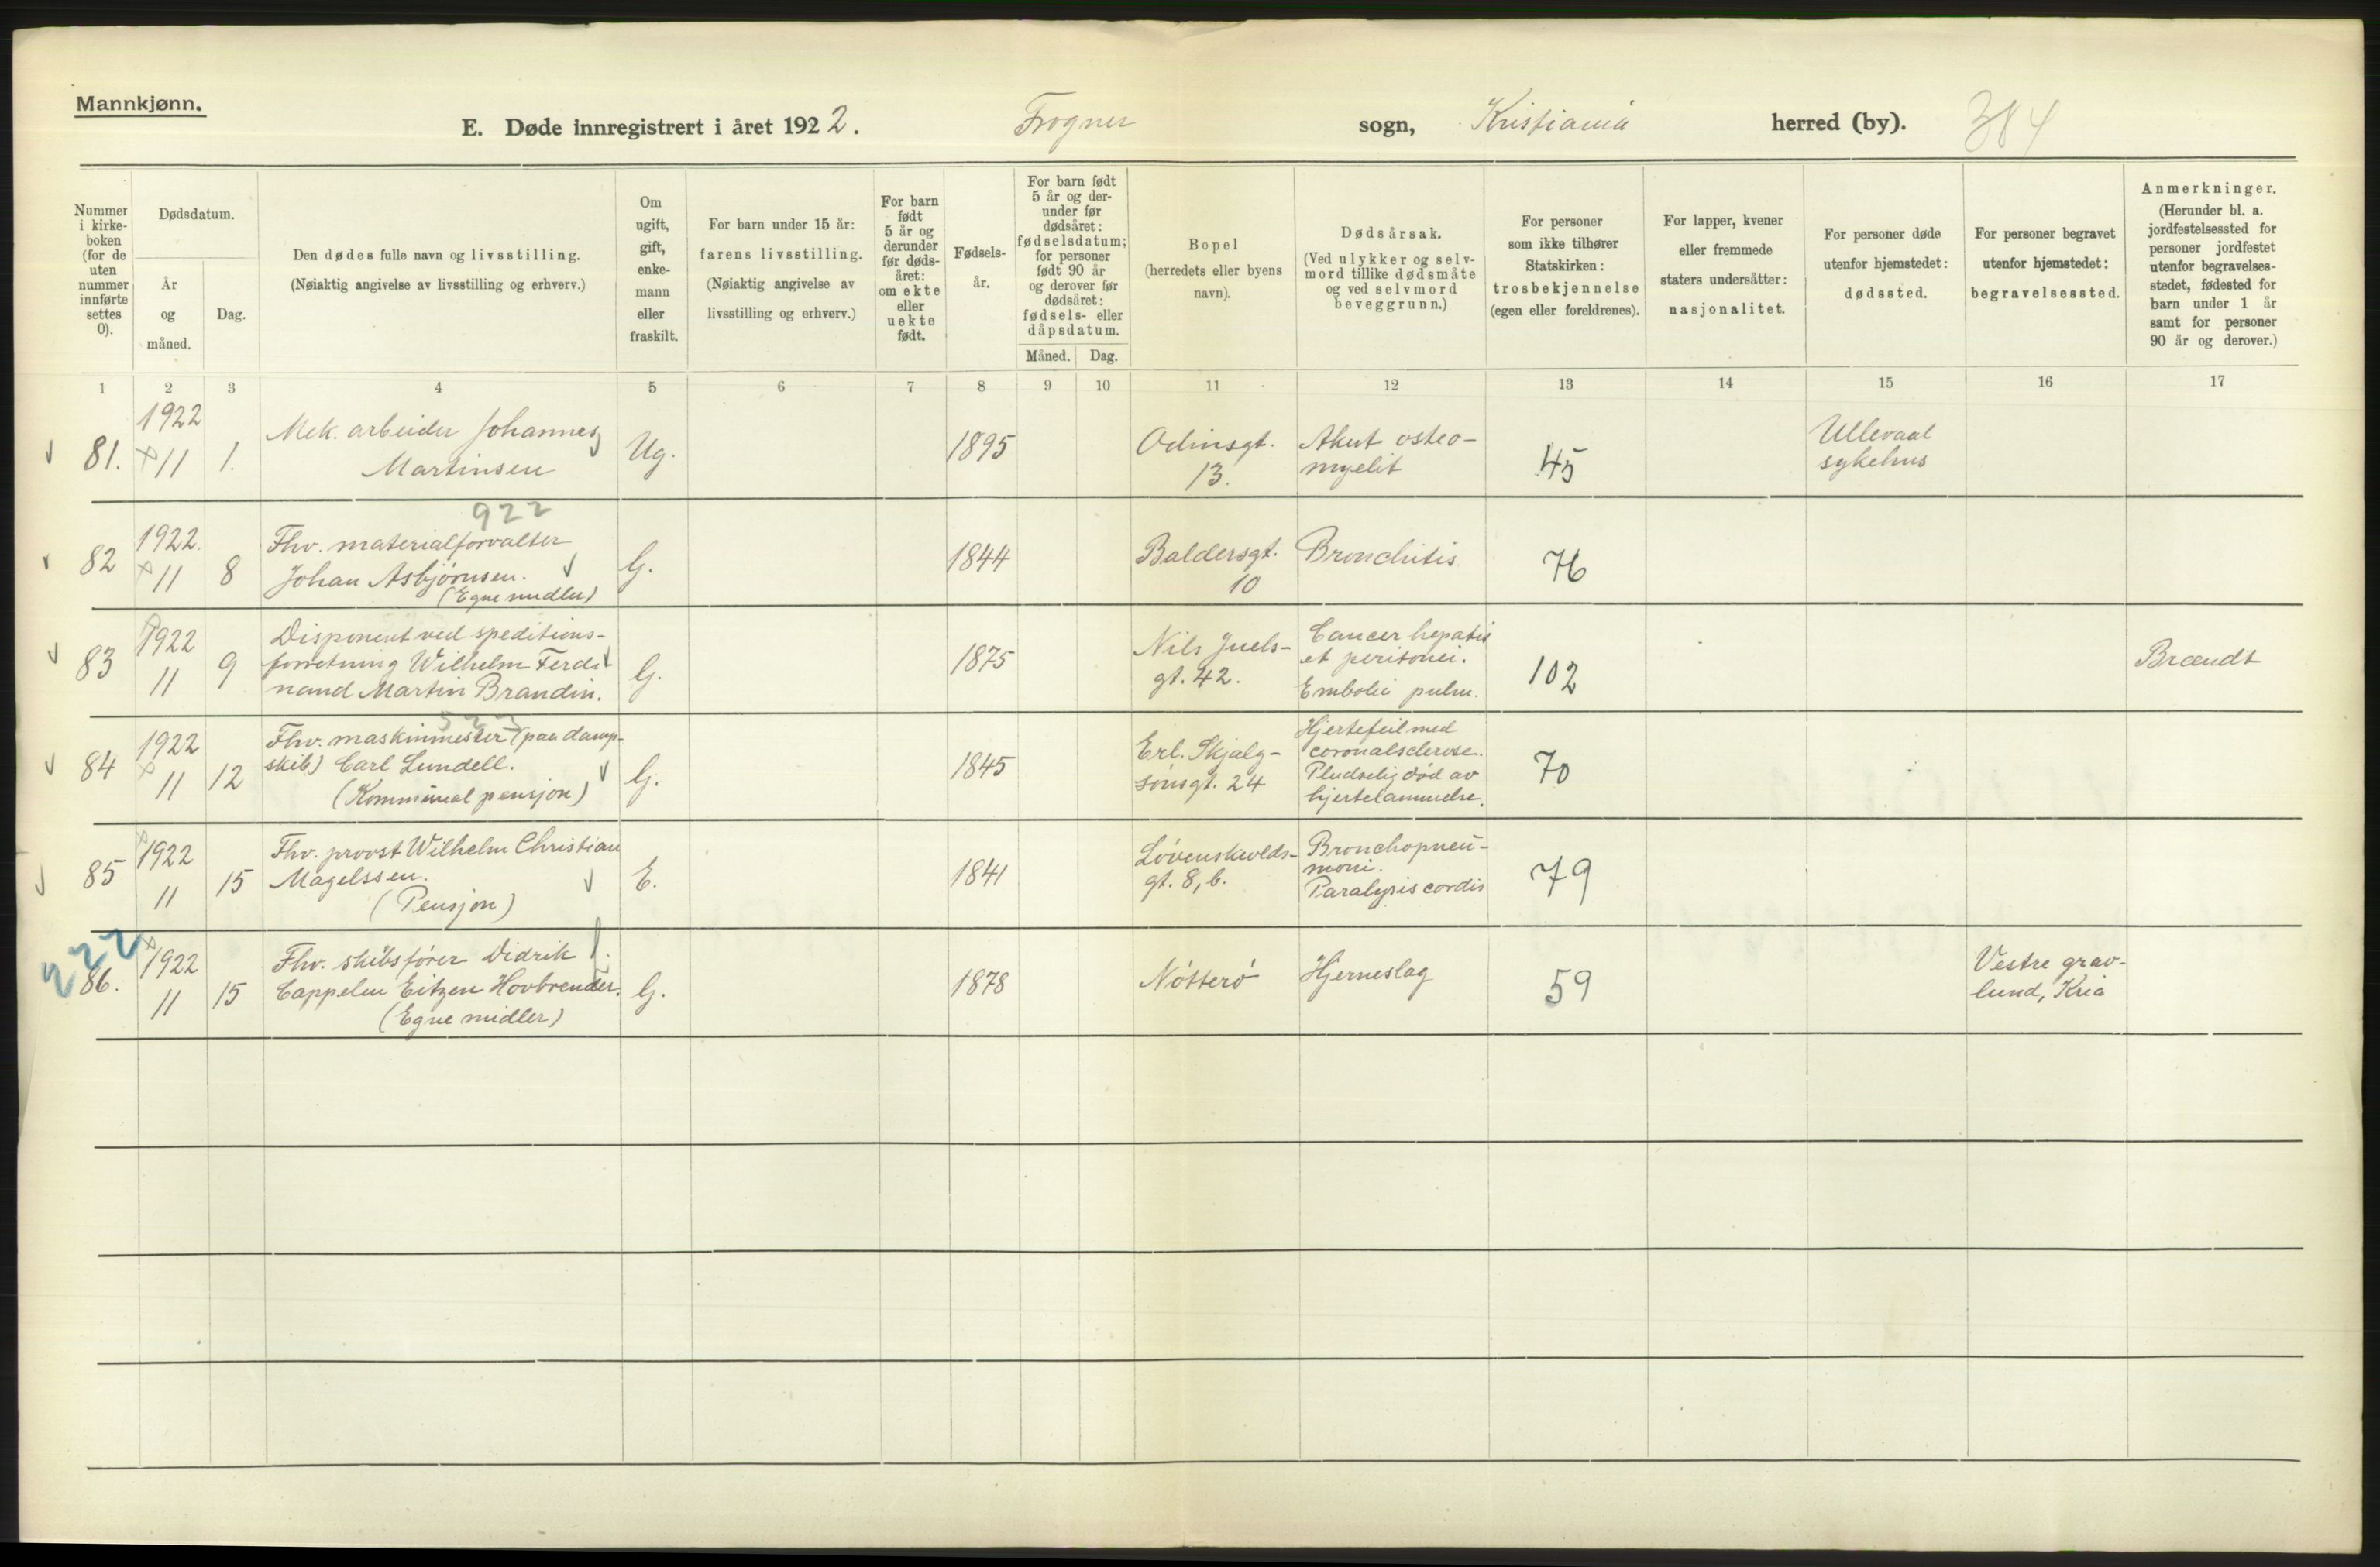 Mannkjønn.
E. Døde innregistrert i året 1922. Frogner sogn, Kristiania herred (by). 384
Nummer i kirkeboken (for de uten nummer innførte settes 0).
Dødsdatum.
År og måned.
Dag.
Den dødes fulle navn og livsstilling.
(Nøiaktig angivelse av livsstilling og erhverv.)
Om ugift, gift, enkemann eller fraskilt.
For barn under 15 år:
farens livsstilling.
(Nøiaktig angivelse av livsstilling og erhverv.)
For barn født 5 år og derunder før dødsåret: om ekte eller uekte født.
Fødselsår.
For barn født 5 år og derunder før dødsåret: fødselsdatum; for personer født 90 år og derover før dødsåret: fødsels- eller dåpsdatum.
Måned. Dag.
Bopel
(herredets eller byens navn).
Dødsårsak.
(Ved ulykker og selvmord tillike dødsmåte og ved selvmord beveggrunn.)
For personer som ikke tilhører Statskirken:
trosbekjennelse
(egen eller foreldrenes).
For lapper, kvener eller fremmede staters undersåtter:
nasjonalitet.
For personer døde utenfor hjemstedet:
dødssted.
For personer begravet utenfor hjemstedet:
begravelsessted.
Anmerkninger.
(Herunder bl. a. jordfestelsessted for personer jordfestet utenfor begravelsesstedet, fødested for barn under 1 år samt for personer 90 år og derover.)
1 2 3 4 5 6 7 8 9 10 11 12 13 14 15 16 17
81. 1922 11 1. Mek. arbeider Johannes
Martinsen
Ug. 1895
Odinsgt.
13.
Akut osteo-
myelit
45
Ullevaal
sykehus
922
82 1922. 11 8 Fhv. materialforvalter
Johan Asbjørnsen.
(Egne midler)
G. 1844
Baldersgt.
10
Bronchitis
76
83 1922 11 9 Disponent ved speditions-
forretning Wilhelm Ferdi
nand Martin Brandin.
G. 1875
Nils Juels-
gt. 42.
Cancer hepatis
et peritonei.
Embolia pulm.
102
Brændt
84 1922 11 12 Fhv. maskinmester (paa damp-
skib) Carl Lundell.
(Kommunal pensjon)
G. 1845
Erl. Skjalg-
sønsgt. 24
Hjertefeil med
coronalsclerose.
Pludselig død av
hjertelammelse.
70
85 1922 11 15 Fhv. provst Wilhelm Christian
Magelssen.
(Pensjon)
E. 1841
Løvenskiolds-
gt. 8, b.
Bronchopneu-
moni.
Paralysis cordis
79
222
86. 1922 11 15 Fhv. skibsfører Didrik
Cappelen Eitzen Hovbrender.
(Egne midler)
G. 1878
Nøtterø
Hjerneslag
59
Vestre grav-
lund, Kria